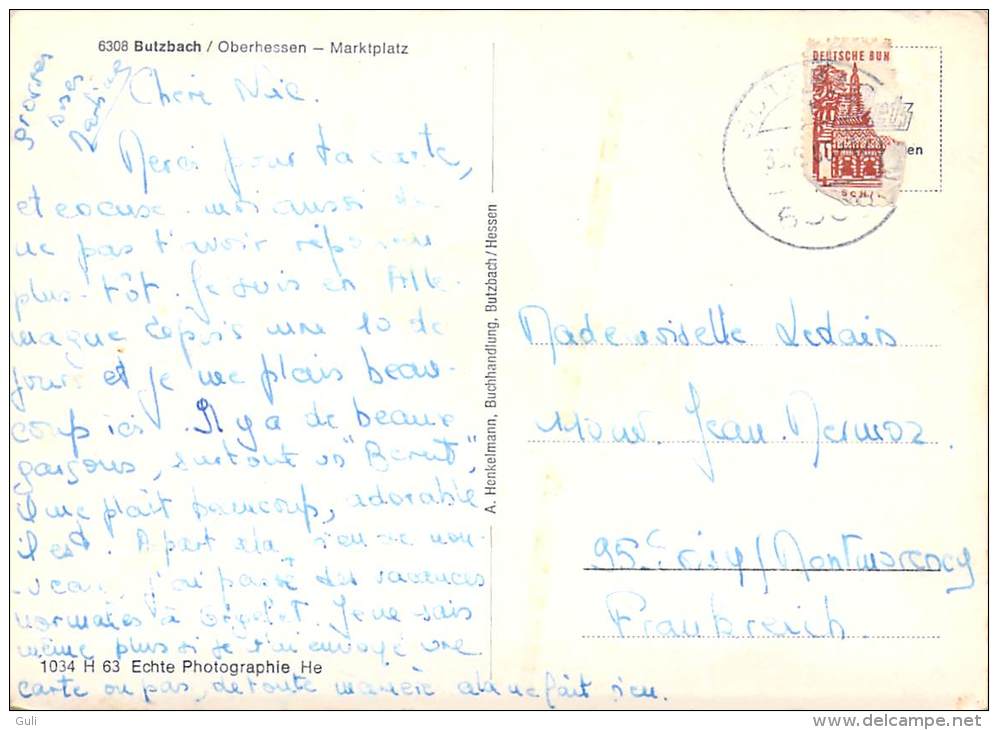 6308 Butzbach / Oberhessen – Marktplatz
Grosses
Martine
Chère
Merci pour ta carte,
et excuse-moi aussi de
ne pas t'avoir répondu
plus-tôt. Je suis en Alle-
magne depuis une 10 de
jours et je me plais beau-
coup ici. Il y a de beaux
garçons, surtout un "Bernt",
il me plaît beaucoup, adorable
il est. A part cela, rien de nou-
veau, j'ai passé des vacances
normales à
Je ne sais
même plus si je t'ai envoyé une
carte ou pas, de toute manière cela ne fait rien.
1034 H 63 Echte Photographie He
A. Henkelmann, Buchhandlung, Butzbach/Hessen
DEUTSCHE BUN
en
Mademoiselle Ledais
Jean. Mermoz.
95 /Montmorency
Frankreich
Guli
delcampe.net